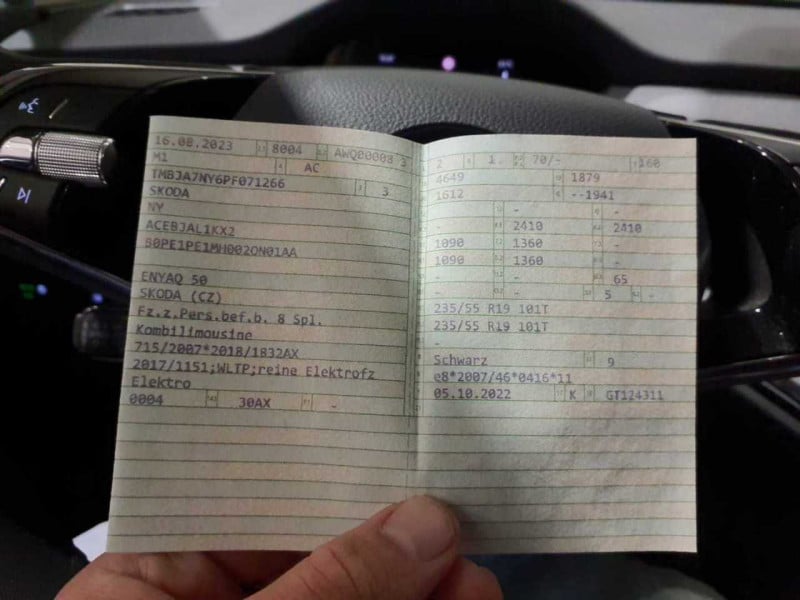 16.08.2023 8004 AWQ00008 3
M1 AC
TMBJA7NY6PF071266 3
SKODA
NY
ACEBJAL1KX2
B0PE1PE1MH002ON01AA
ENYAQ 50
SKODA (CZ)
Fz.z.Pers.bef.b. 8 Spl.
Kombilimousine
715/2007*2018/1832AX
2017/1151;WLTP;reine Elektrofz
Elektro
0004 30AX -
2 1. 70/- 160
4649 1879
1612 --1941
- -
- 2410 2410
1090 1360 -
1090 1360 -
- 65
- - 5 -
235/55 R19 101T
235/55 R19 101T
-
Schwarz 9
e8*2007/46*0416*11
05.10.2022 K GT124311